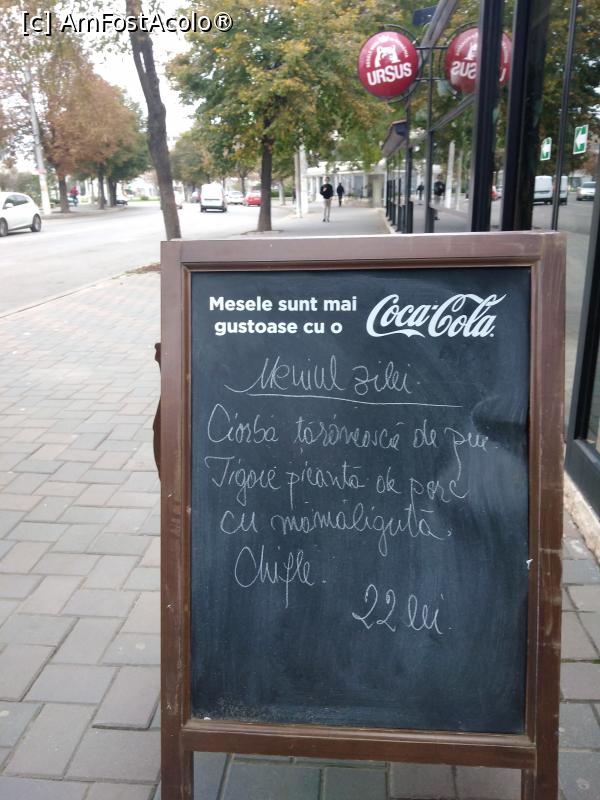 [c] AmFostAcolo®
URSUS
URSUS
Mesele sunt mai
gustoase cu o
Coca-Cola
Meniul zilei.
Ciorbă țărănească de pui.
Tigaie picantă de porc
cu mămăliguță.
Chifle.
22 lei.